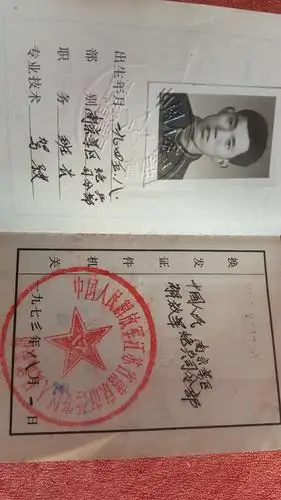 出生年月 一九四五.八.
部别 南京军区炮兵司令部
职务 班长
专业技术 驾驶
换发证件机关
中国人民 南京军区
解放军 炮兵司令部
一九七三年八月一日
中国人民解放军江苏省南京市